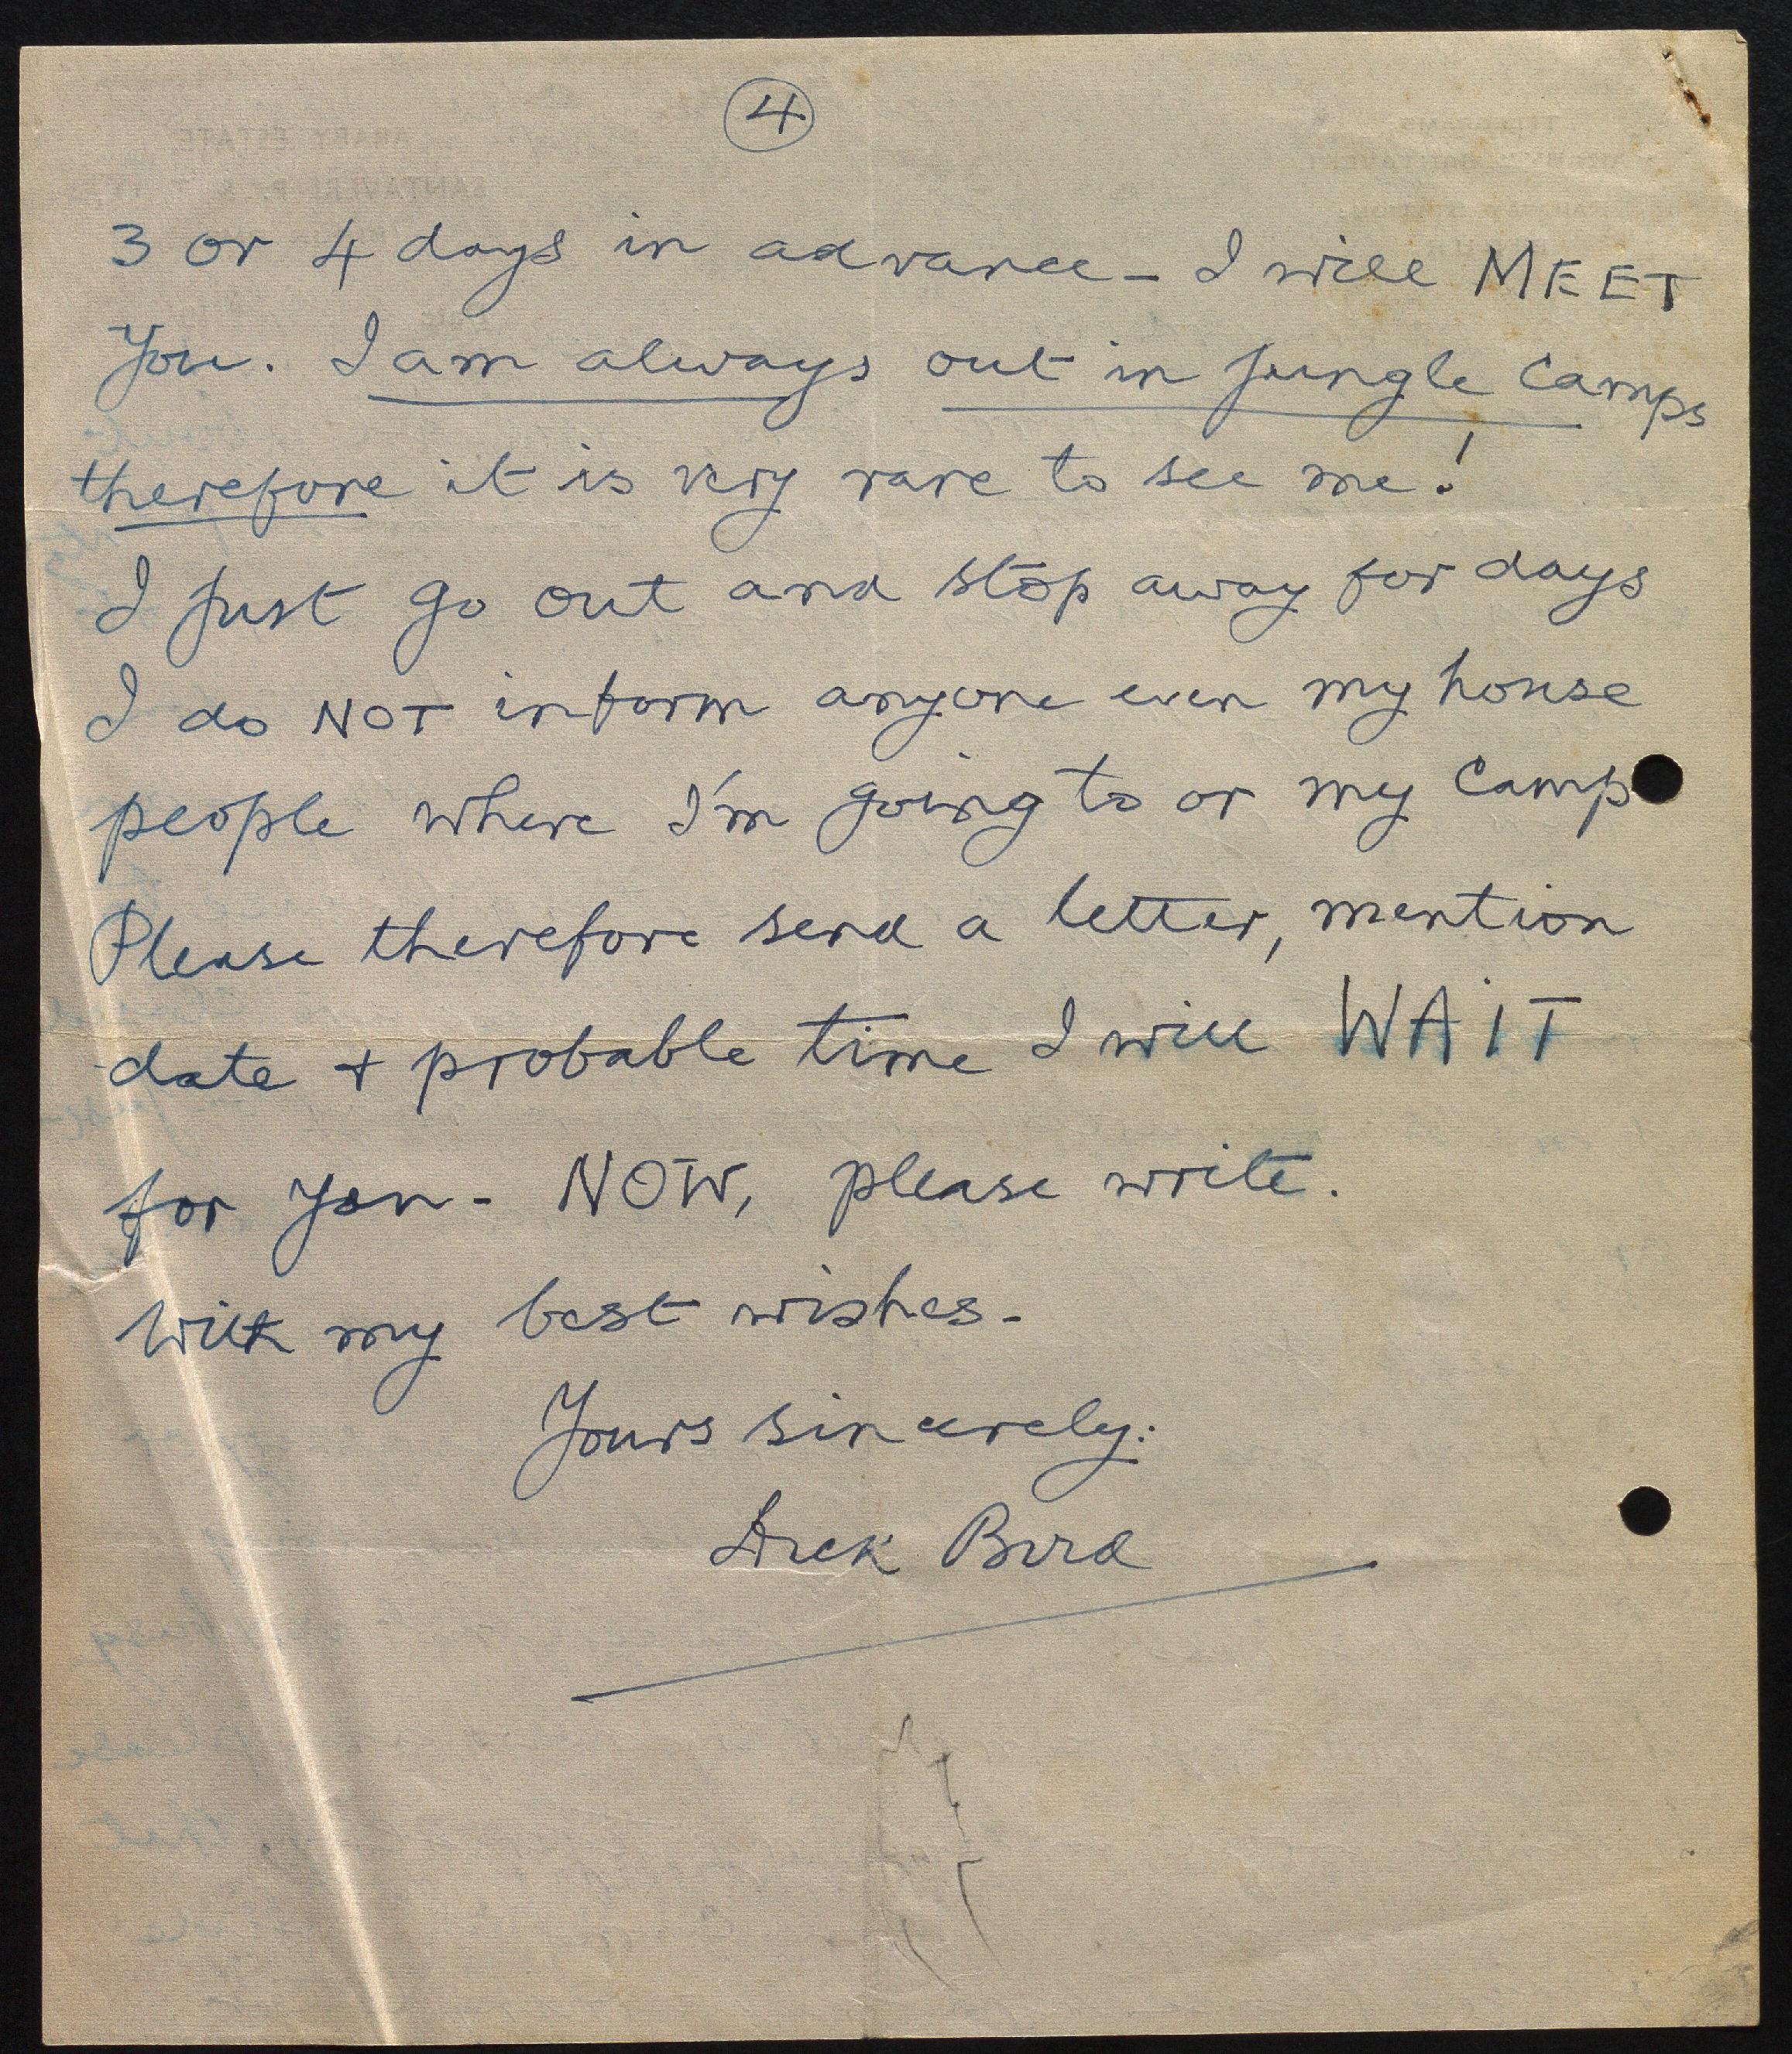 4
3 or 4 days in advance - I will MEET
You. I am always out in jungle Camps
therefore it is very rare to see me!
I just go out and stop away for days
I do NOT inform anyone even my house
people where I'm going to or my Camp
Please therefore send a letter, mention
date + probable time I will WAIT
for you - NOW, please write.
With my best wishes -
Yours sincerely:
Dick Bird